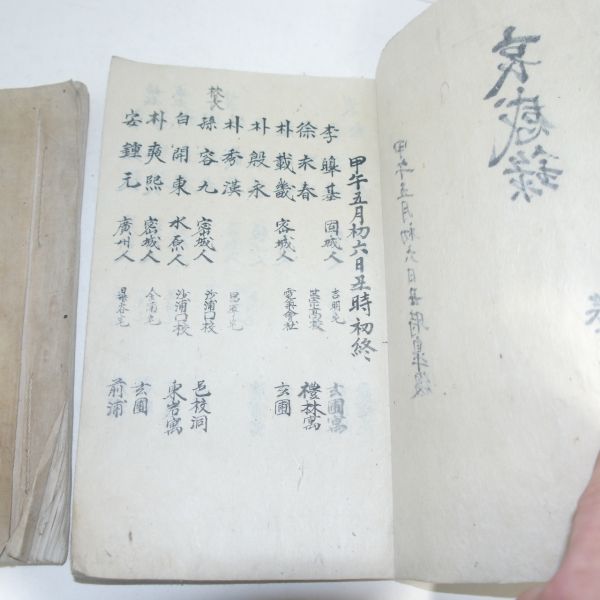 哀感錄
甲午五月初六日丑時皐復
甲午五月初六日丑時初終
李 基 固城人 玄圃寓
徐 春 高校 樓林寓
朴載畿 密城人 電氣會社 玄圃
朴殷永
朴秀漢
孫容九 密城人 沙浦 校 邑校洞
白開東 水原人 沙浦 校 東岩寓
朴爽熙 密城人 玄圃
安鍾元 廣州人 前浦